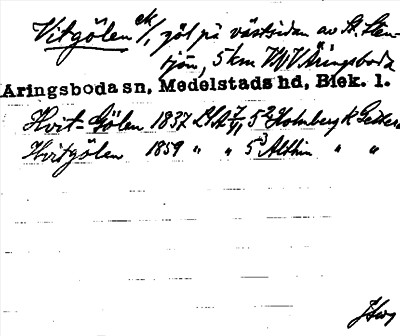 Vitgölen ek/, göl på västsidan av St. Sten-
sjön, 5 km VNV Äringsboda
Åringsboda sn, Medelstads hd, Blek. l.
Hvit-Gölen 1837 LSA 5² Holmberg k
Hvitgölen 1859 " " 5³ " "